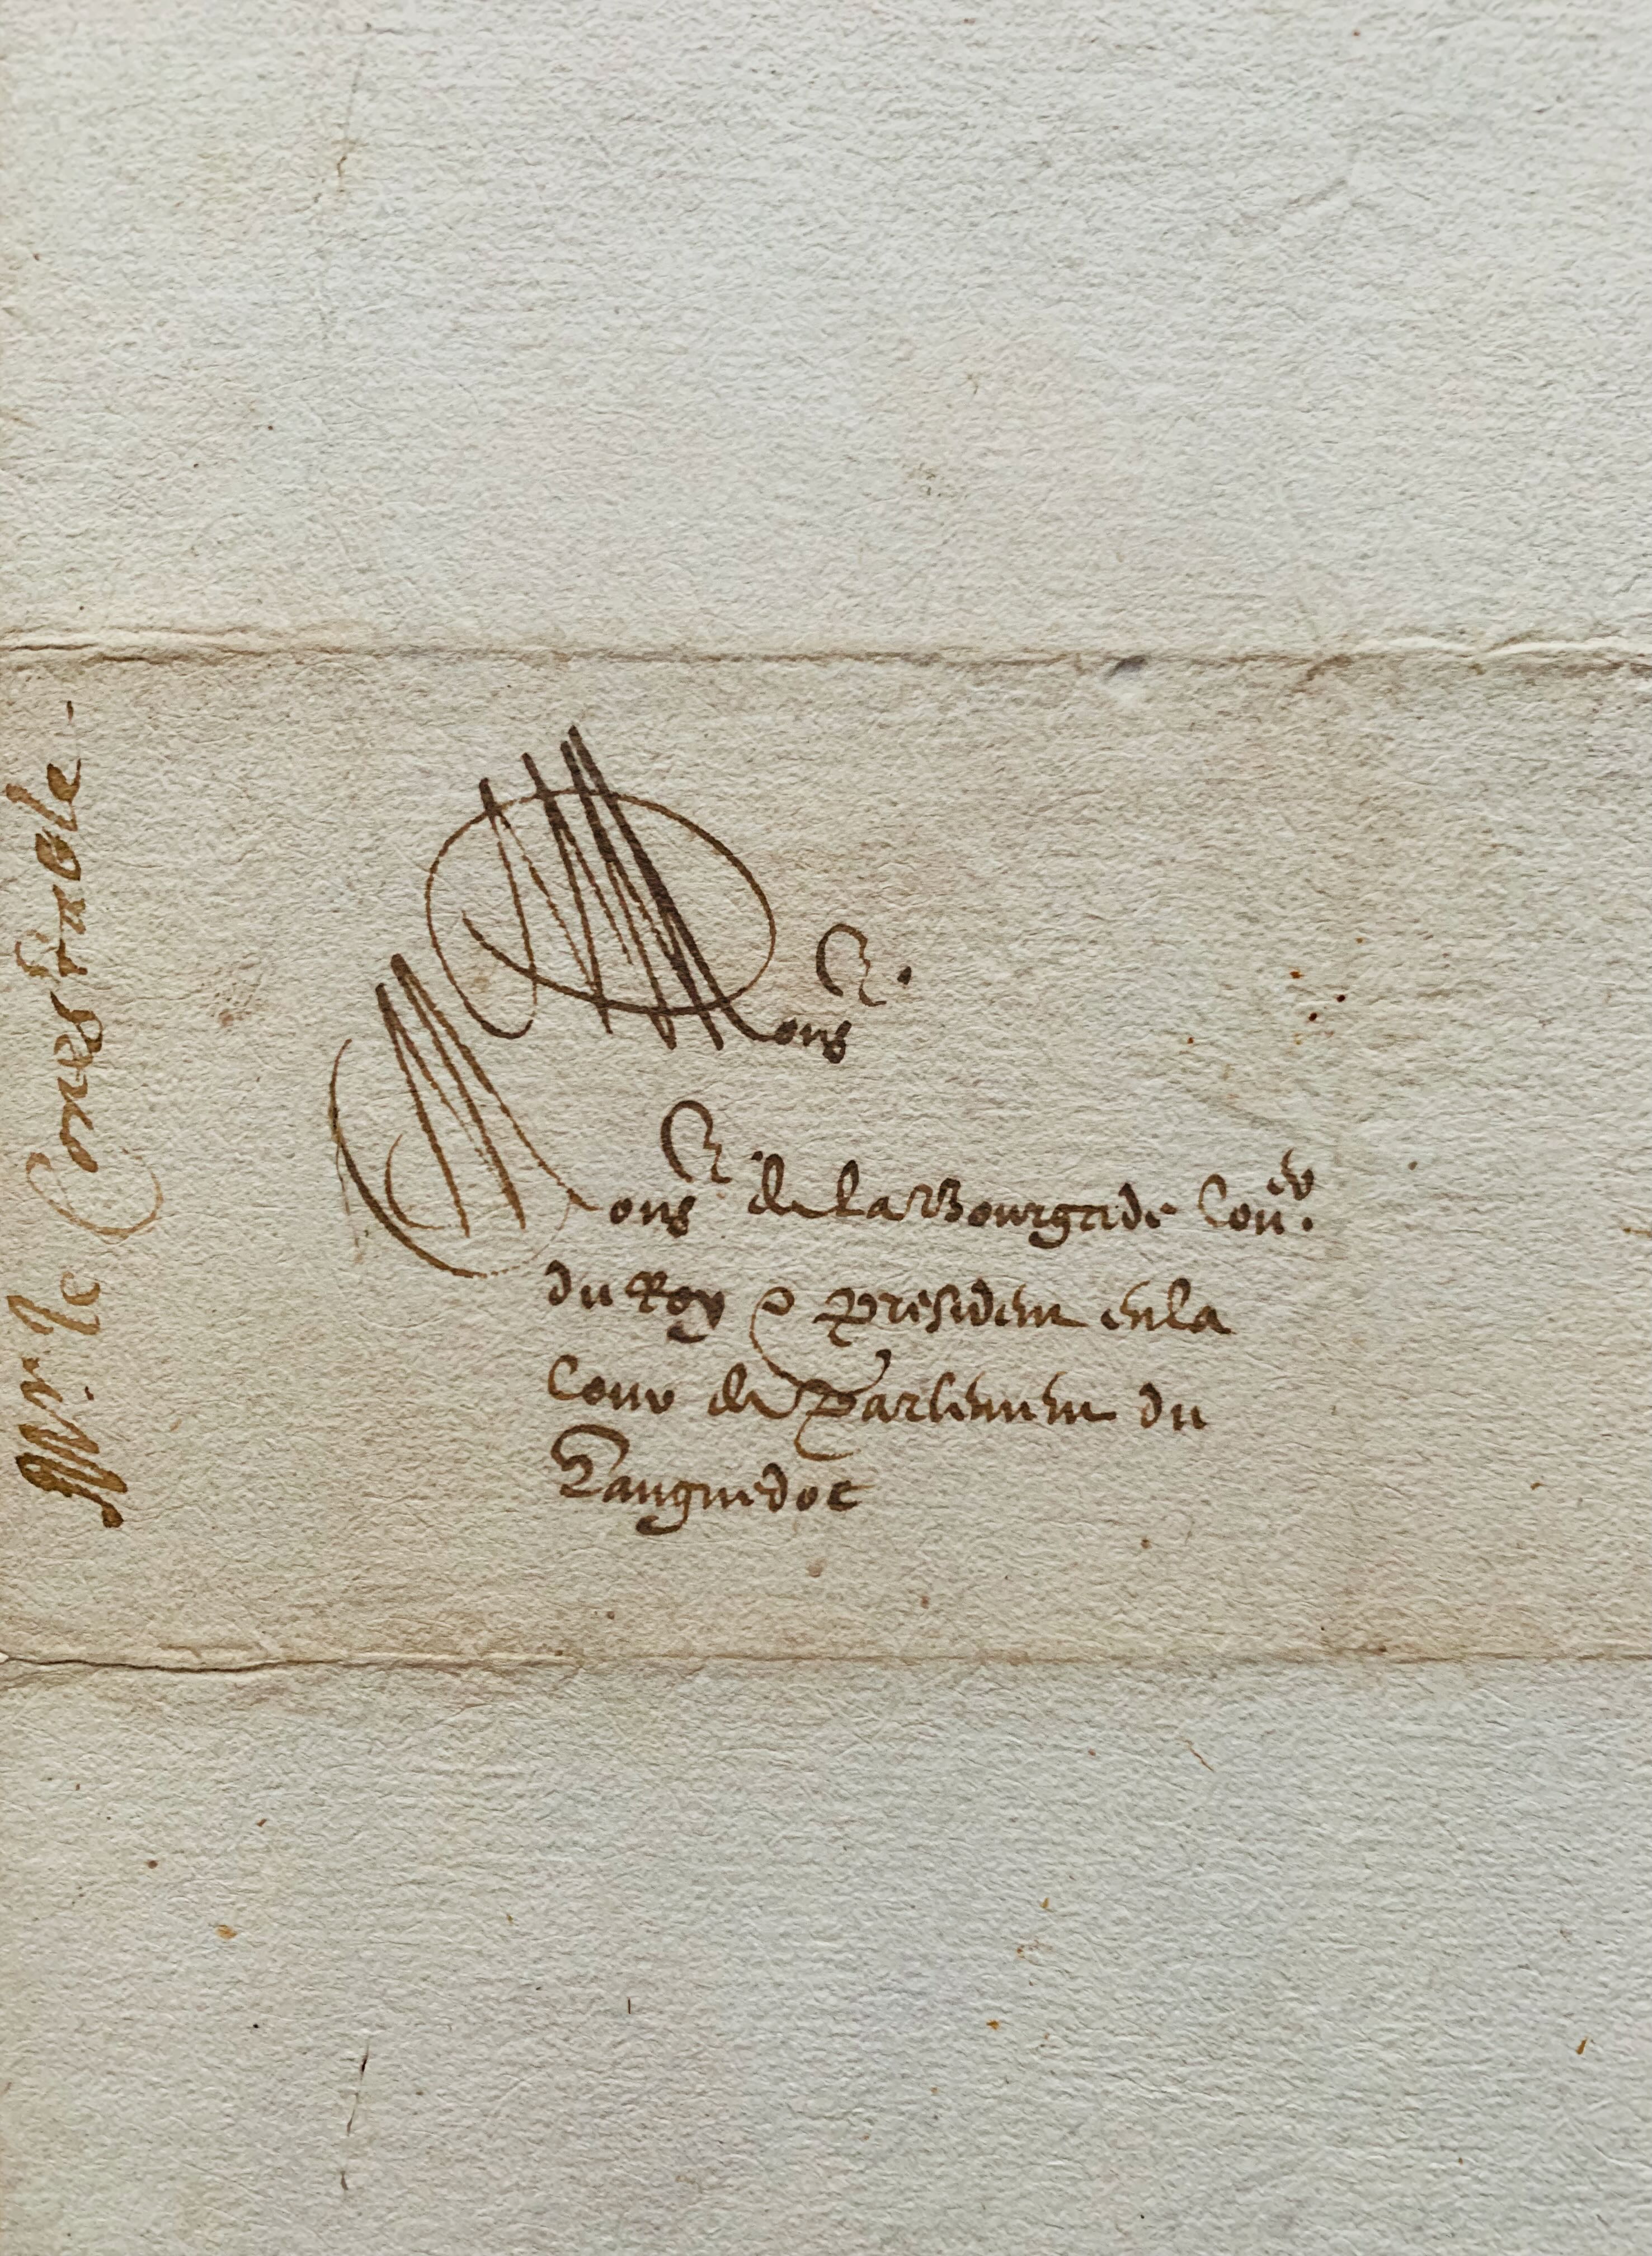 Mons.r
Mons.r de la Bourgade Con.er
du Roy & president en la
Cour de Parlement du
Languedoc
Mr. le Connestable